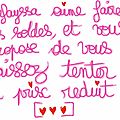 fayssa aime faire
les soldes, et vous
propose de vous
laissez tenter
prix reduit